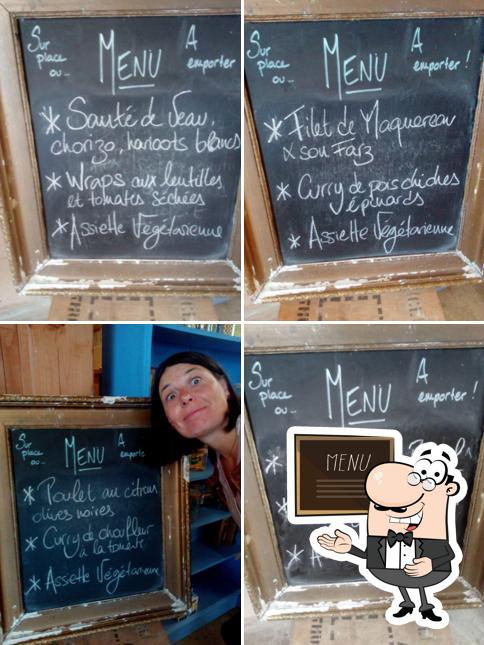 Sur place ou..
MENU
A emporter
* Sauté de Veau,
chorizo, haricots blancs
* Wraps aux lentilles
et tomates séchées
* Assiette Végétarienne
Sur place ou..
MENU
A emporter !
* Filet de Maquereau
& son Farz
* Curry de pois chiches
épinards
* Assiette Végétarienne
Sur place ou..
MENU
A emporte
* Poulet au citron
olives noires
* Curry de choufleur
à la tomate
* Assiette Végétarienne
Sur place ou..
MENU
A emporter !
MENU